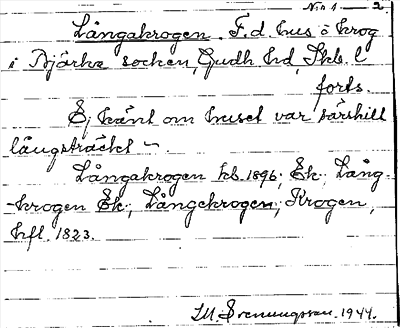 No 1 – 2.
Långakrogen. F.d. hus o krog
i Bjärke socken, Gudh hd, Skb. l
forts.
Ej känt om huset var särskilt
långsträckt –.
Långakrogen kb. 1896; Ek; Lång-
krogen Ek; Långekrogen; Krogen,
hfl. 1823.
M. Svenungsson. 1944.